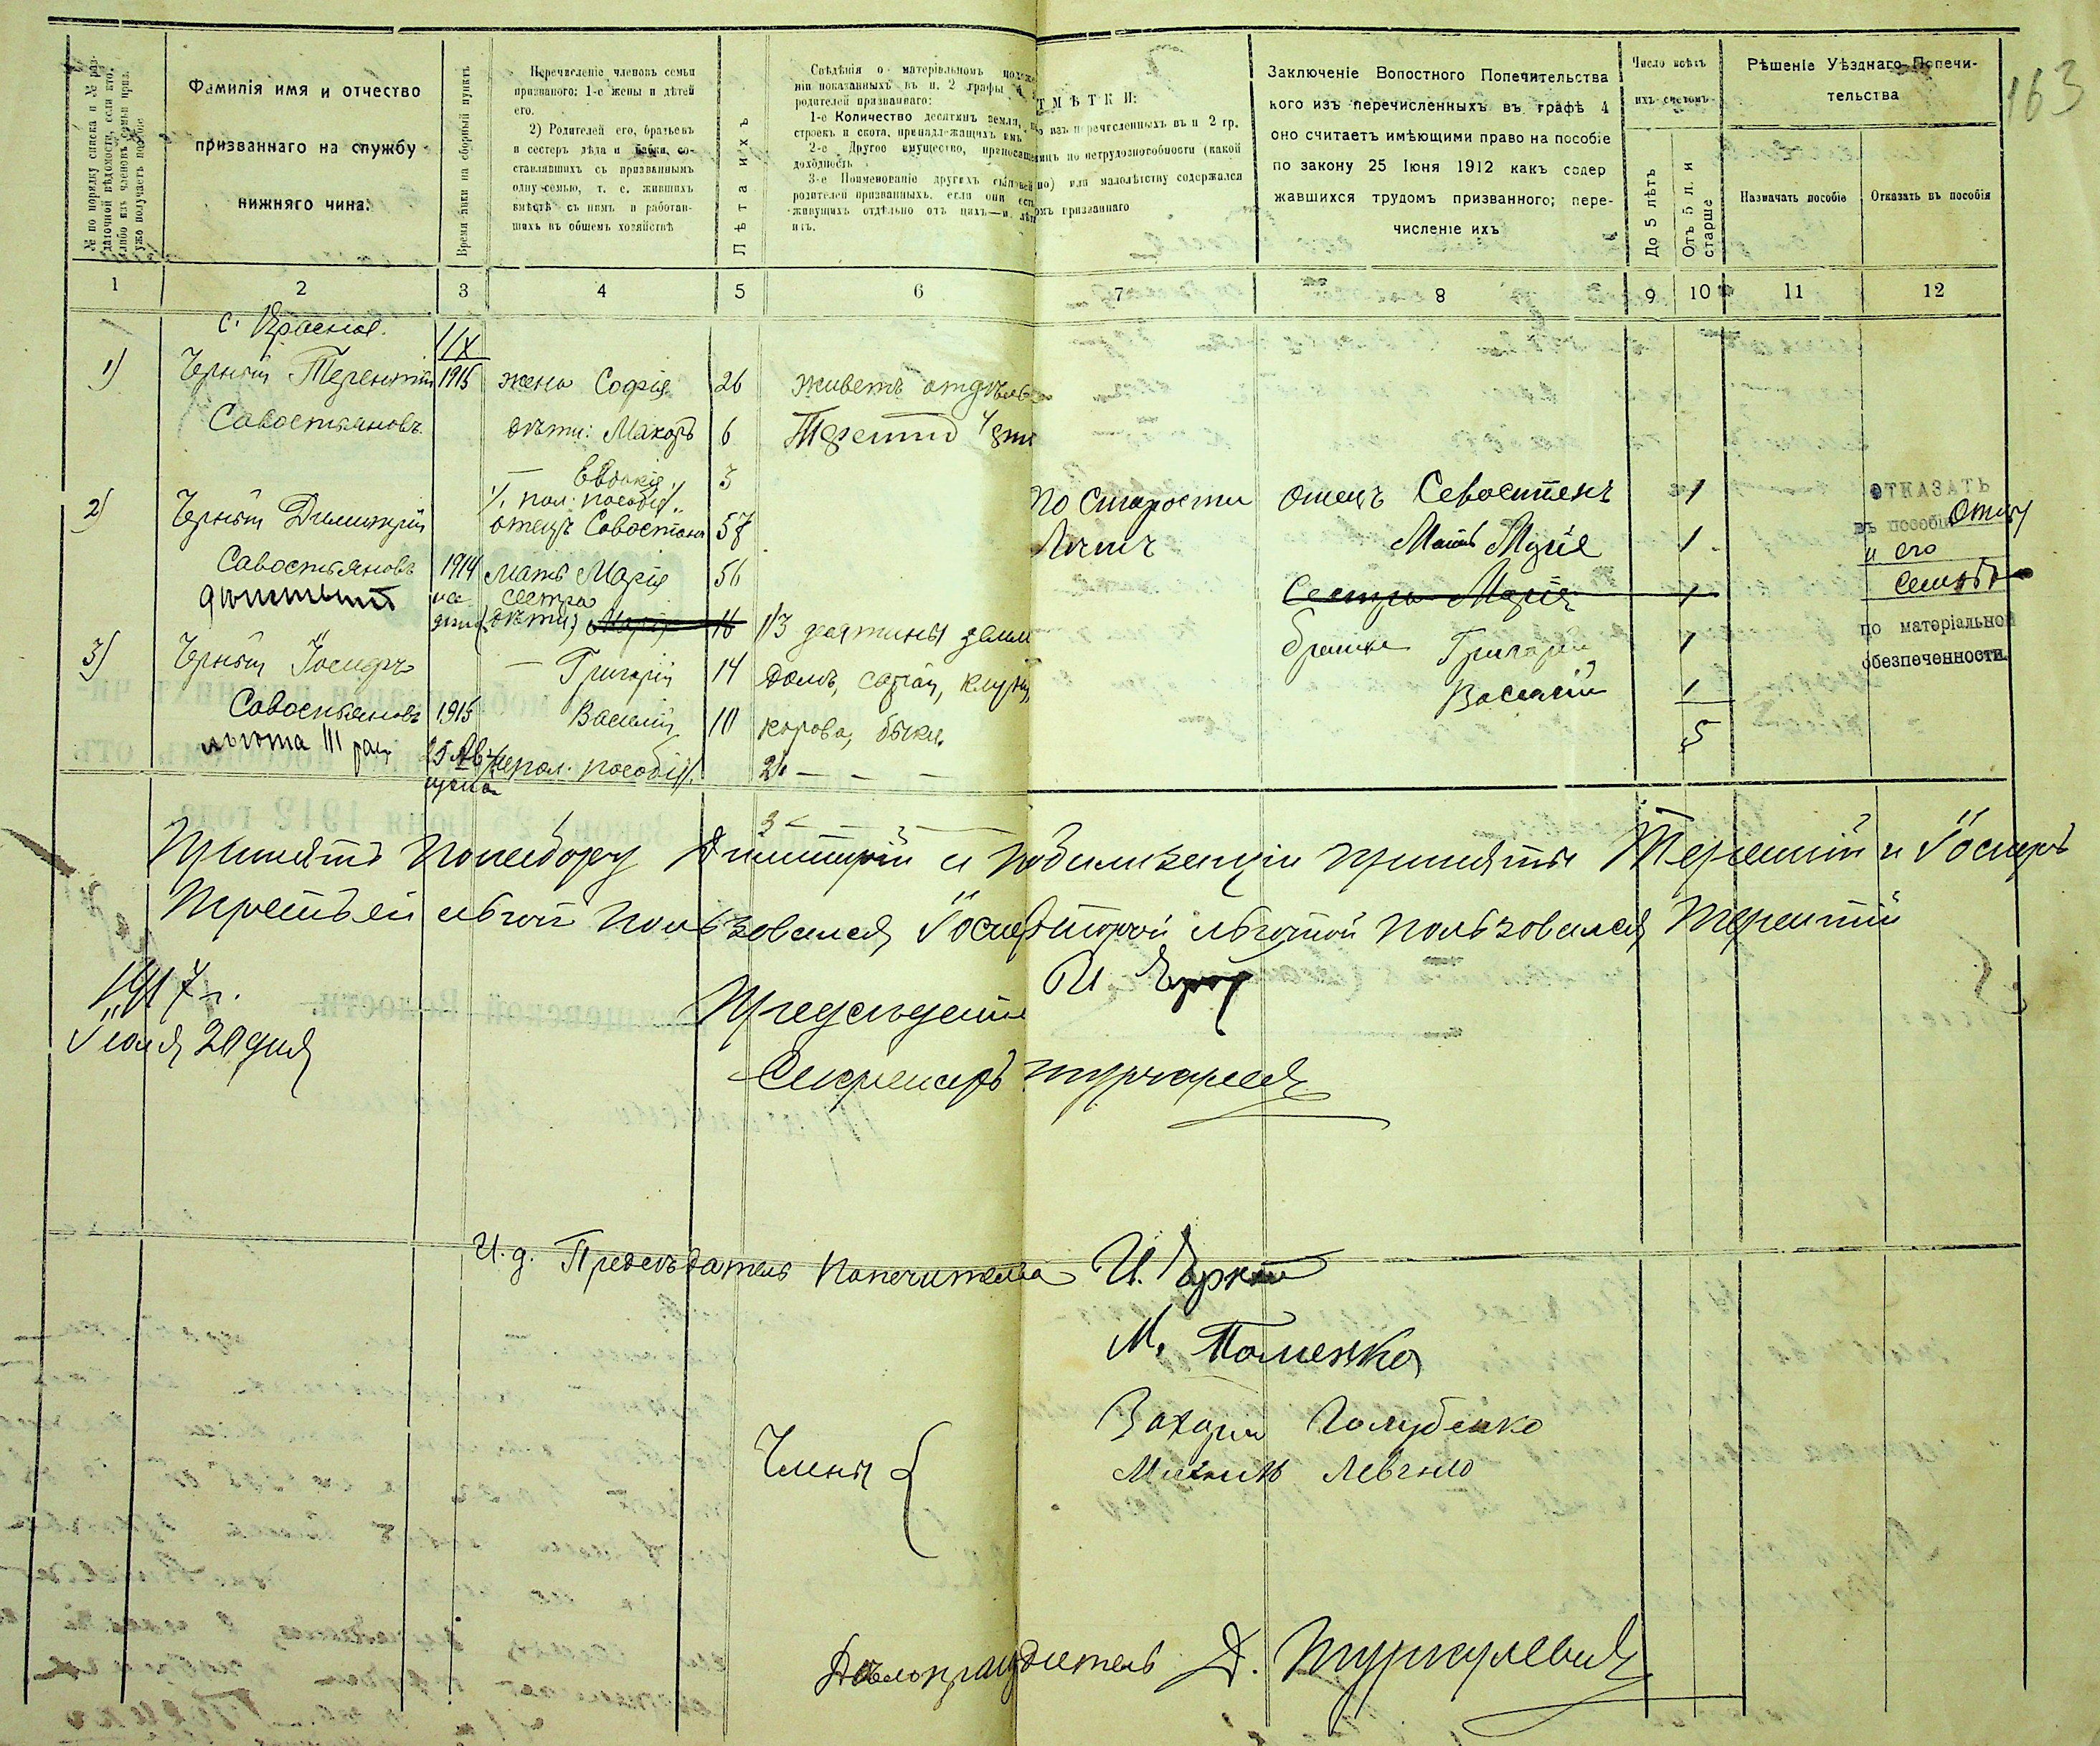 163
№ по порядку списка и № раз-
даточной вѣдомости, если кто-
либо изъ членовъ семьи приз.
уже получаетъ пособіе
Фамилія имя и отчество
призваннаго на службу
нижняго чина:
Время явки на сборный пунктъ
Перечисленіе членовъ семьи
призваннаго: 1-е жены и дѣтей
его.
2) Родителей его, братьевъ
и сестеръ дѣда и бабки, со-
ставлявшихъ съ призваннымъ
одну семью, т. е. жившихъ
вмѣстѣ съ нимъ и работав-
шихъ въ общемъ хозяйствѣ
Лѣта ихъ
Свѣдѣнія о матеріальномъ положе
ніи показанныхъ въ п. 2 графы 4
родителей призваннаго:
1-е Количество десятинъ земли, по
строекъ и скота, принадлежащихъ имъ
2-е Другое имущество, приносящ
доходность
3-е Поименованіе другихъ сыновей
родителей призванныхъ, если они есть
живущихъ отдѣльно отъ нихъ—и лѣта
ихъ.
ТМѢТКИ:
изъ перечсленныхъ въ п 2 гр.
по нетрудоспособности (какой
но) или малолѣтству содержался
омъ призваннаго
Заключеніе Вопостного Попечительства
кого изъ перечисленныхъ въ графѣ 4
оно считаетъ имѣющими право на пособіе
по закону 25 Іюня 1912 какъ содер
жавшихся трудомъ призванного; пере-
численіе ихъ
Число всѣхъ
ихъ счетомъ
До 5 лѣтъ
Отъ 5 л. и
старше
Рѣшеніе Уѣзднаго Попечи-
тельства
Назначать пособіе
Отказать въ пособіи
1 2 3 4 5 6 7 8 9 10 11 12
с. Красное.
1/IX
1) Черный Терентій 1915 жена Софія 26 живетъ отдѣль
Савостьяновъ дѣти: Макаръ 6 Терентій
— Евдокія 3
/. пол. пособіе /.
2) Черный Димитрій отецъ Савостьянъ 58 по старости отецъ Севостіенъ 1
Савостьяновъ 1914 мать Марія 56 лѣтъ Мать Марія 1
сестра
дѣти) Марія 16 1/3 десятины земли Сестра Марія 1
3) Черный Іосифъ — Григорій 14 домъ, сарай, клуня, братья Григорій 1
Савостьяновъ 1915 Василій 10 корова, быки. Василій 1
льгота III раз 25 Ав /не пол. пособія/. 2) — — — 5
3 — —
ОТКАЗАТЬ
въ пособіи Отцу
и его
семьѣ
по матеріальной
обезпеченности.
Принятъ по набору Димитрій и мобилизаціи приняты Терентій и Іосифъ
Третьей льготой пользовался Іосифъ второй льготой пользовался Терентій
1917 г.
Іюля 20 дня
Предсѣдатель
Секретарь
И. д. Предсѣдатель Попечительства И.
М. Поменко
Члены { Захарій Голубенко
Левченко
Дѣлопроизводитель Д. Туркулевичъ